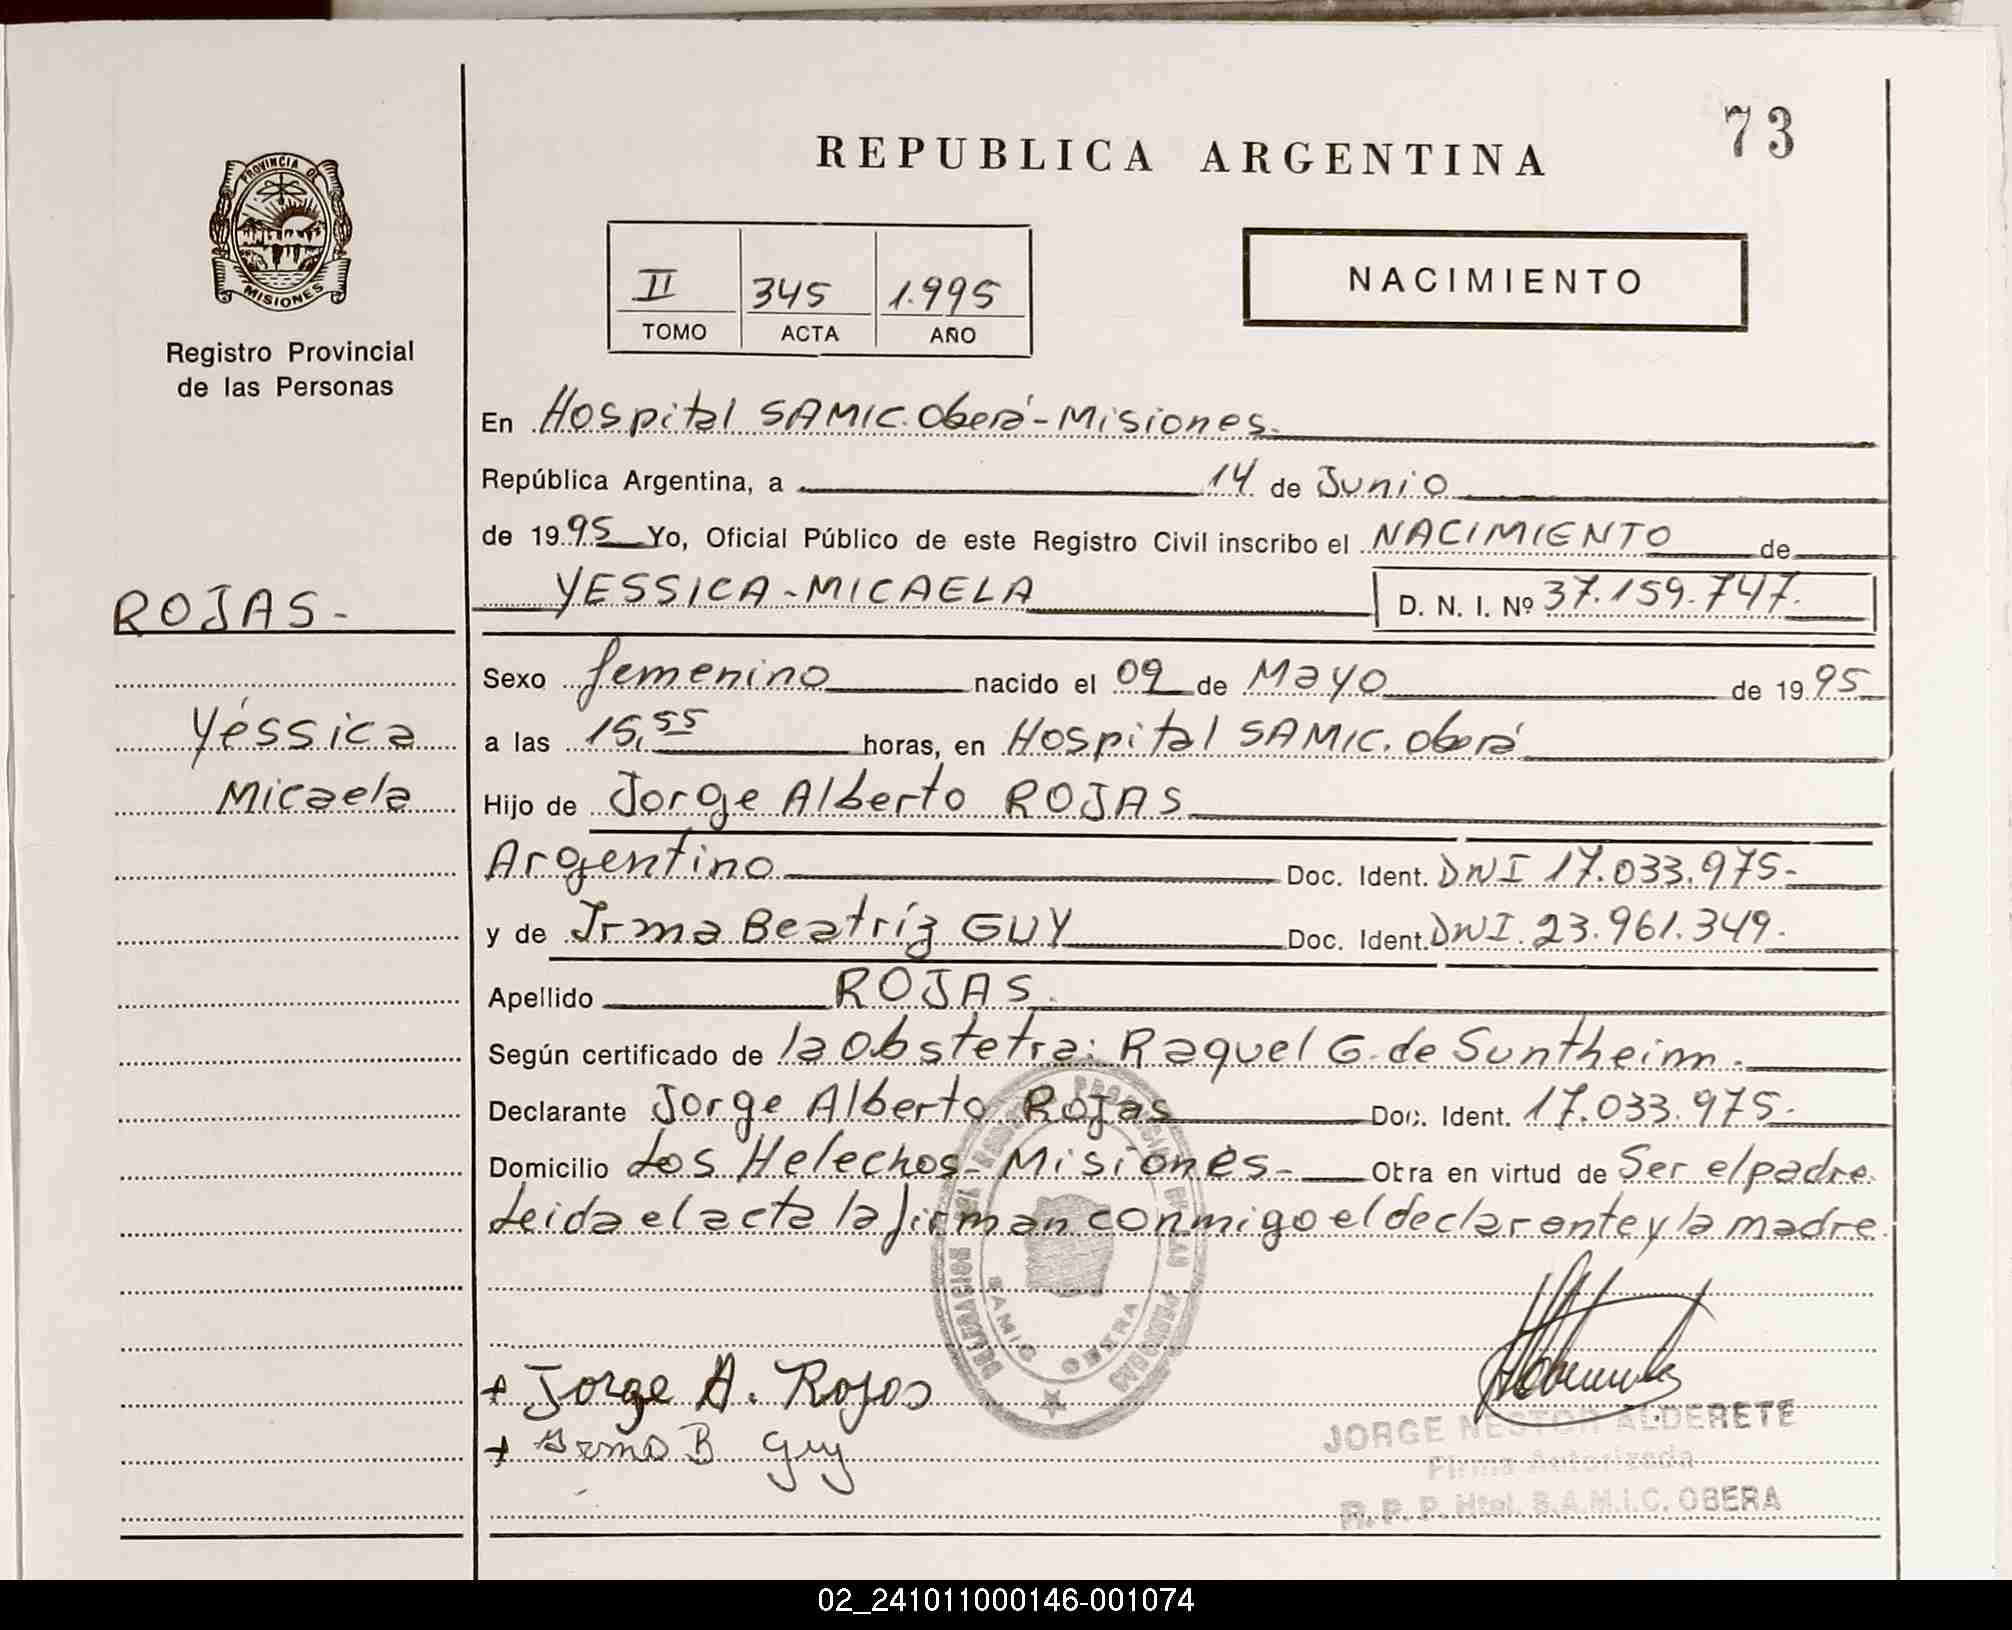 73
REPUBLICA ARGENTINA
PROVINCIA DE
MISIONES
Registro Provincial
de las Personas
II 345 1.995
TOMO ACTA AÑO
NACIMIENTO
En Hospital SAMIC. Oberá - Misiones.
República Argentina, a 14 de Junio
de 1995 Yo, Oficial Público de este Registro Civil inscribo el NACIMIENTO de
YESSICA - MICAELA D. N. I. Nº 37.159.747.
ROJAS -
Sexo femenino nacido el 09 de Mayo de 1995
Yéssica
a las 15,55 horas, en Hospital SAMIC. Oberá
Micaela
Hijo de Jorge Alberto ROJAS
Argentino Doc. Ident. DNI 17.033.975-
y de Irma Beatríz GUY Doc. Ident. DNI. 23.961.349.
Apellido ROJAS.
Según certificado de la obstetra: Raquel G. de Suntheim.
Declarante Jorge Alberto Rojas Doc. Ident. 17.033.975.
Domicilio Los Helechos - Misiones - Otra en virtud de Ser el padre.
Leida el acta la firman conmigo el declarante y la madre.
SAMIC OBERA
+ Jorge A. Rojas
+ Irma B Guy
JORGE NESTOR ALDERETE
Firma Autorizada
R. P. P. Htal. S.A.M.I.C. OBERA
02_241011000146-001074